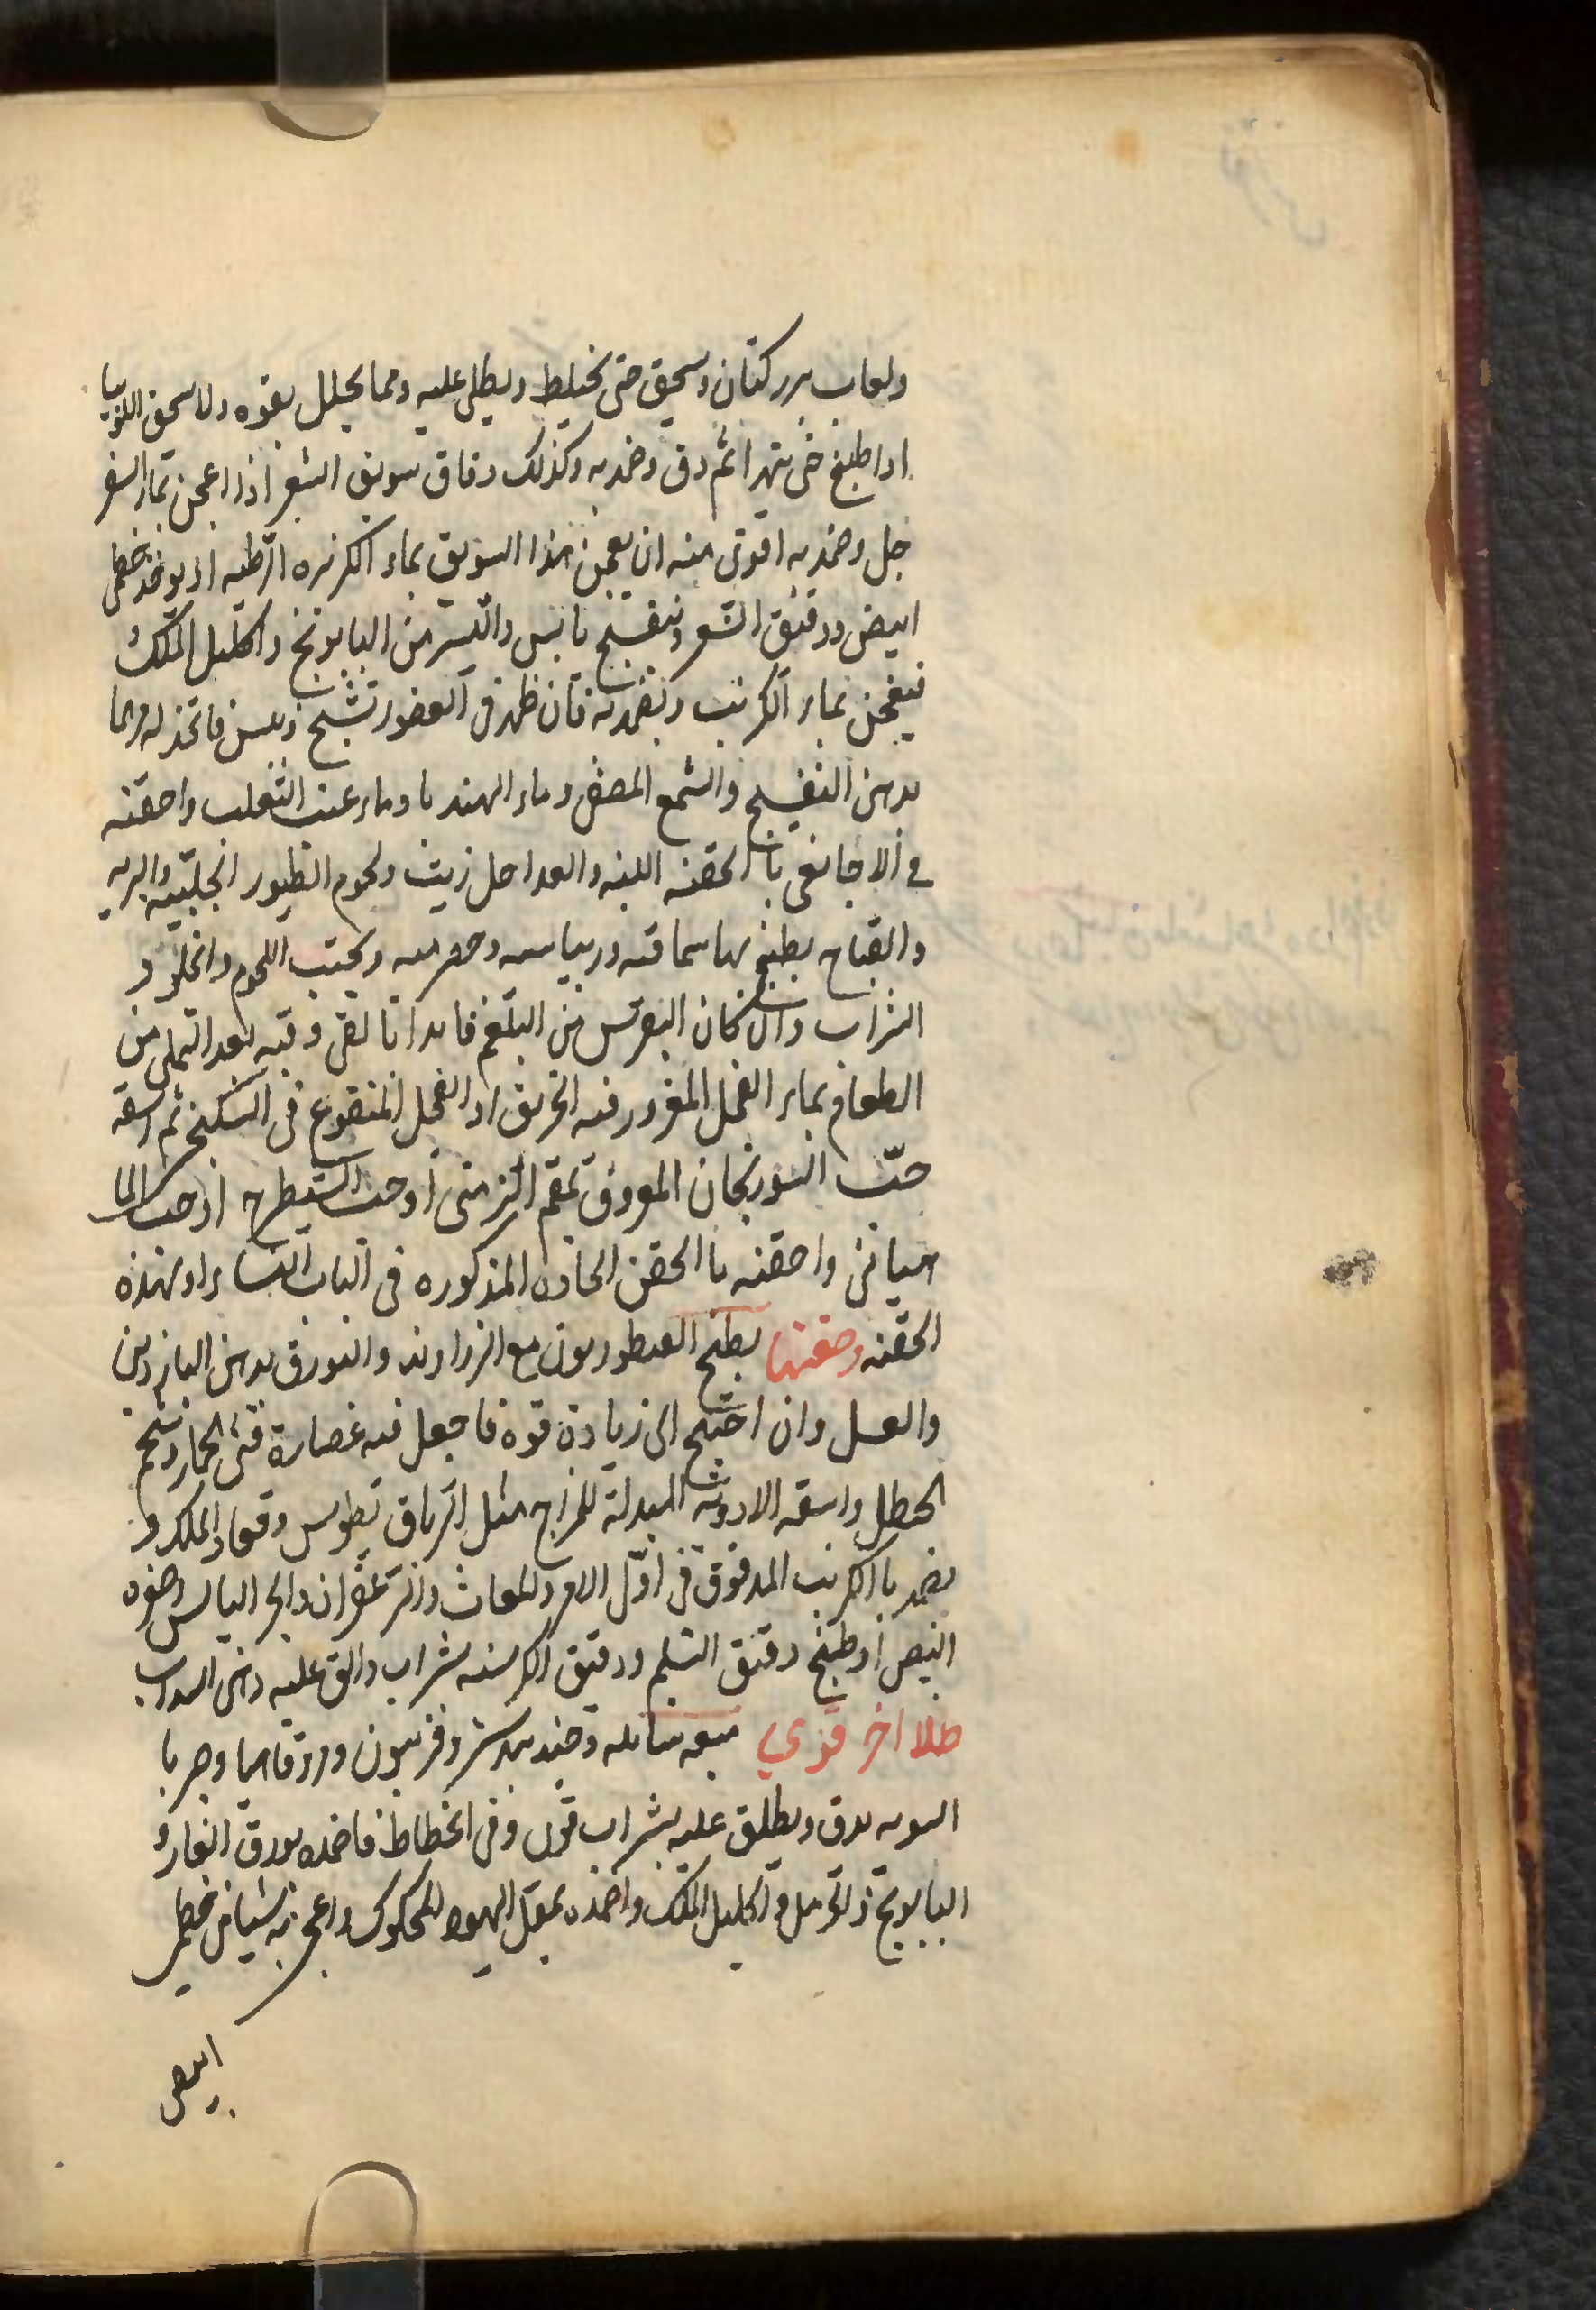 ولعاب بزر كتان وسحق حتى يختلط ويطلى عليه ومما يحلل بقوه ولا سحق اللوبيا
اذا طبخ حتى يتهرا ثم دق وضمد به وكذلك دقاق سويق الشعير اذا اعجن بماء السفر
جل وضمد به اقوى منه ان يعجن هذا السويق بماء الكزبره الرطبه او يوخذ خطمى
ابيض ودقيق الشعير وبنفسج يابس واليسير من البابونج واكليل الملك
فيعجن بماء الكرنب ويضمد به فان ظهر فى العضو تشنج ويبس فاتخذ له مرهما
بدهن البنفسج والشمع المصفى وماء الهندبا وماء عنب الثعلب واحقنه
فى الاجايين با الحقنه اللينه والغدا حل زيت ولحوم الطيور الجبليه والبريه
والقباج يطبخ بها سماقيه وريباسيه وحصرميه ويجتنب اللحوم والحلو و
الشراب وان كان النقرس من البلغم فابدا بالقى وقيه بعد التملى من
الطعام بماء الفجل المغرور فيه الخربق او الفجل المنقوع فى السكنجبين ثم اسقه
حب السورنجان المعروف بمقيم الزمنى او حب الشيطرج او حب الما
هيانى واحقنه با الحقن الحاده المذكوره فى الباب النسا او بهذه
الحقنه وصفتها يطبخ القنطوريون مع الزراوند والبورق بدهن الناردين
والعسل وان احتيج الى زيادة قوة فاجعل فيه عصارة قثى الحمار وشحم
الحنظل واسقه الادويه المبدلة للمزاج مثل الترياق نطوس وقفاد الملك و
يضمد با الكرنب المدقوق فى اول الامر ولمعاث والزعفران والخر اليابس وصفره
البيض او طبخ دقيق الشلم ودقيق الكرسنه بشراب والق عليه دهن السداب
طلا اخر قوي ميعه سايله وجندبيدستر وفربيون وردقاهيا وصربا
السويه يدق ويطلق عليه بشراب قوى وفى انحطاط فاضمده بورق الغار و
البابونج والحرمل واكليل الملك واضمده بمقل اليهود المحكوك واعجن به شيا من خطمى
ابيض